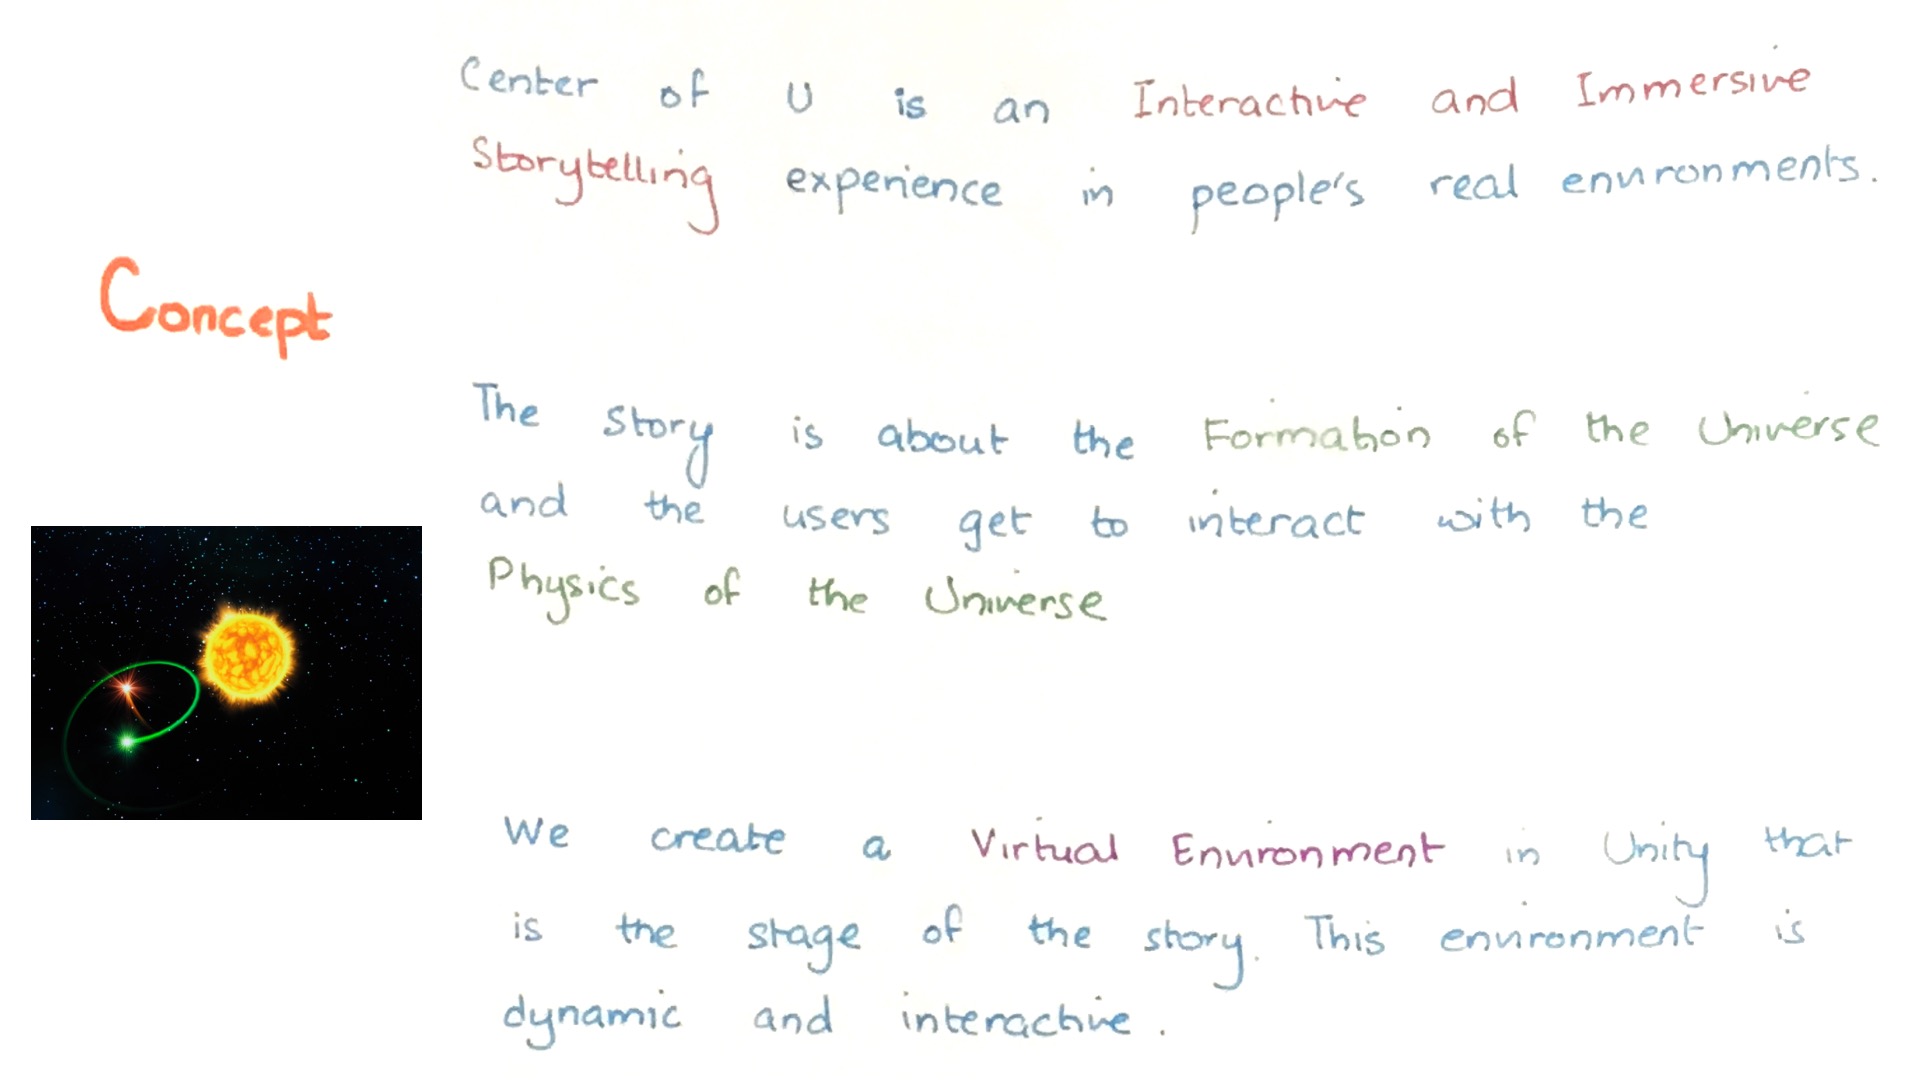 Center of U is an Interactive and Immersive
Storytelling experience in people's real environments.
Concept
The Story is about the Formation of the Universe
and the users get to interact with the
Physics of the Universe
We create a Virtual Environment in Unity that
is the stage of the story. This environment is
dynamic and interactive.